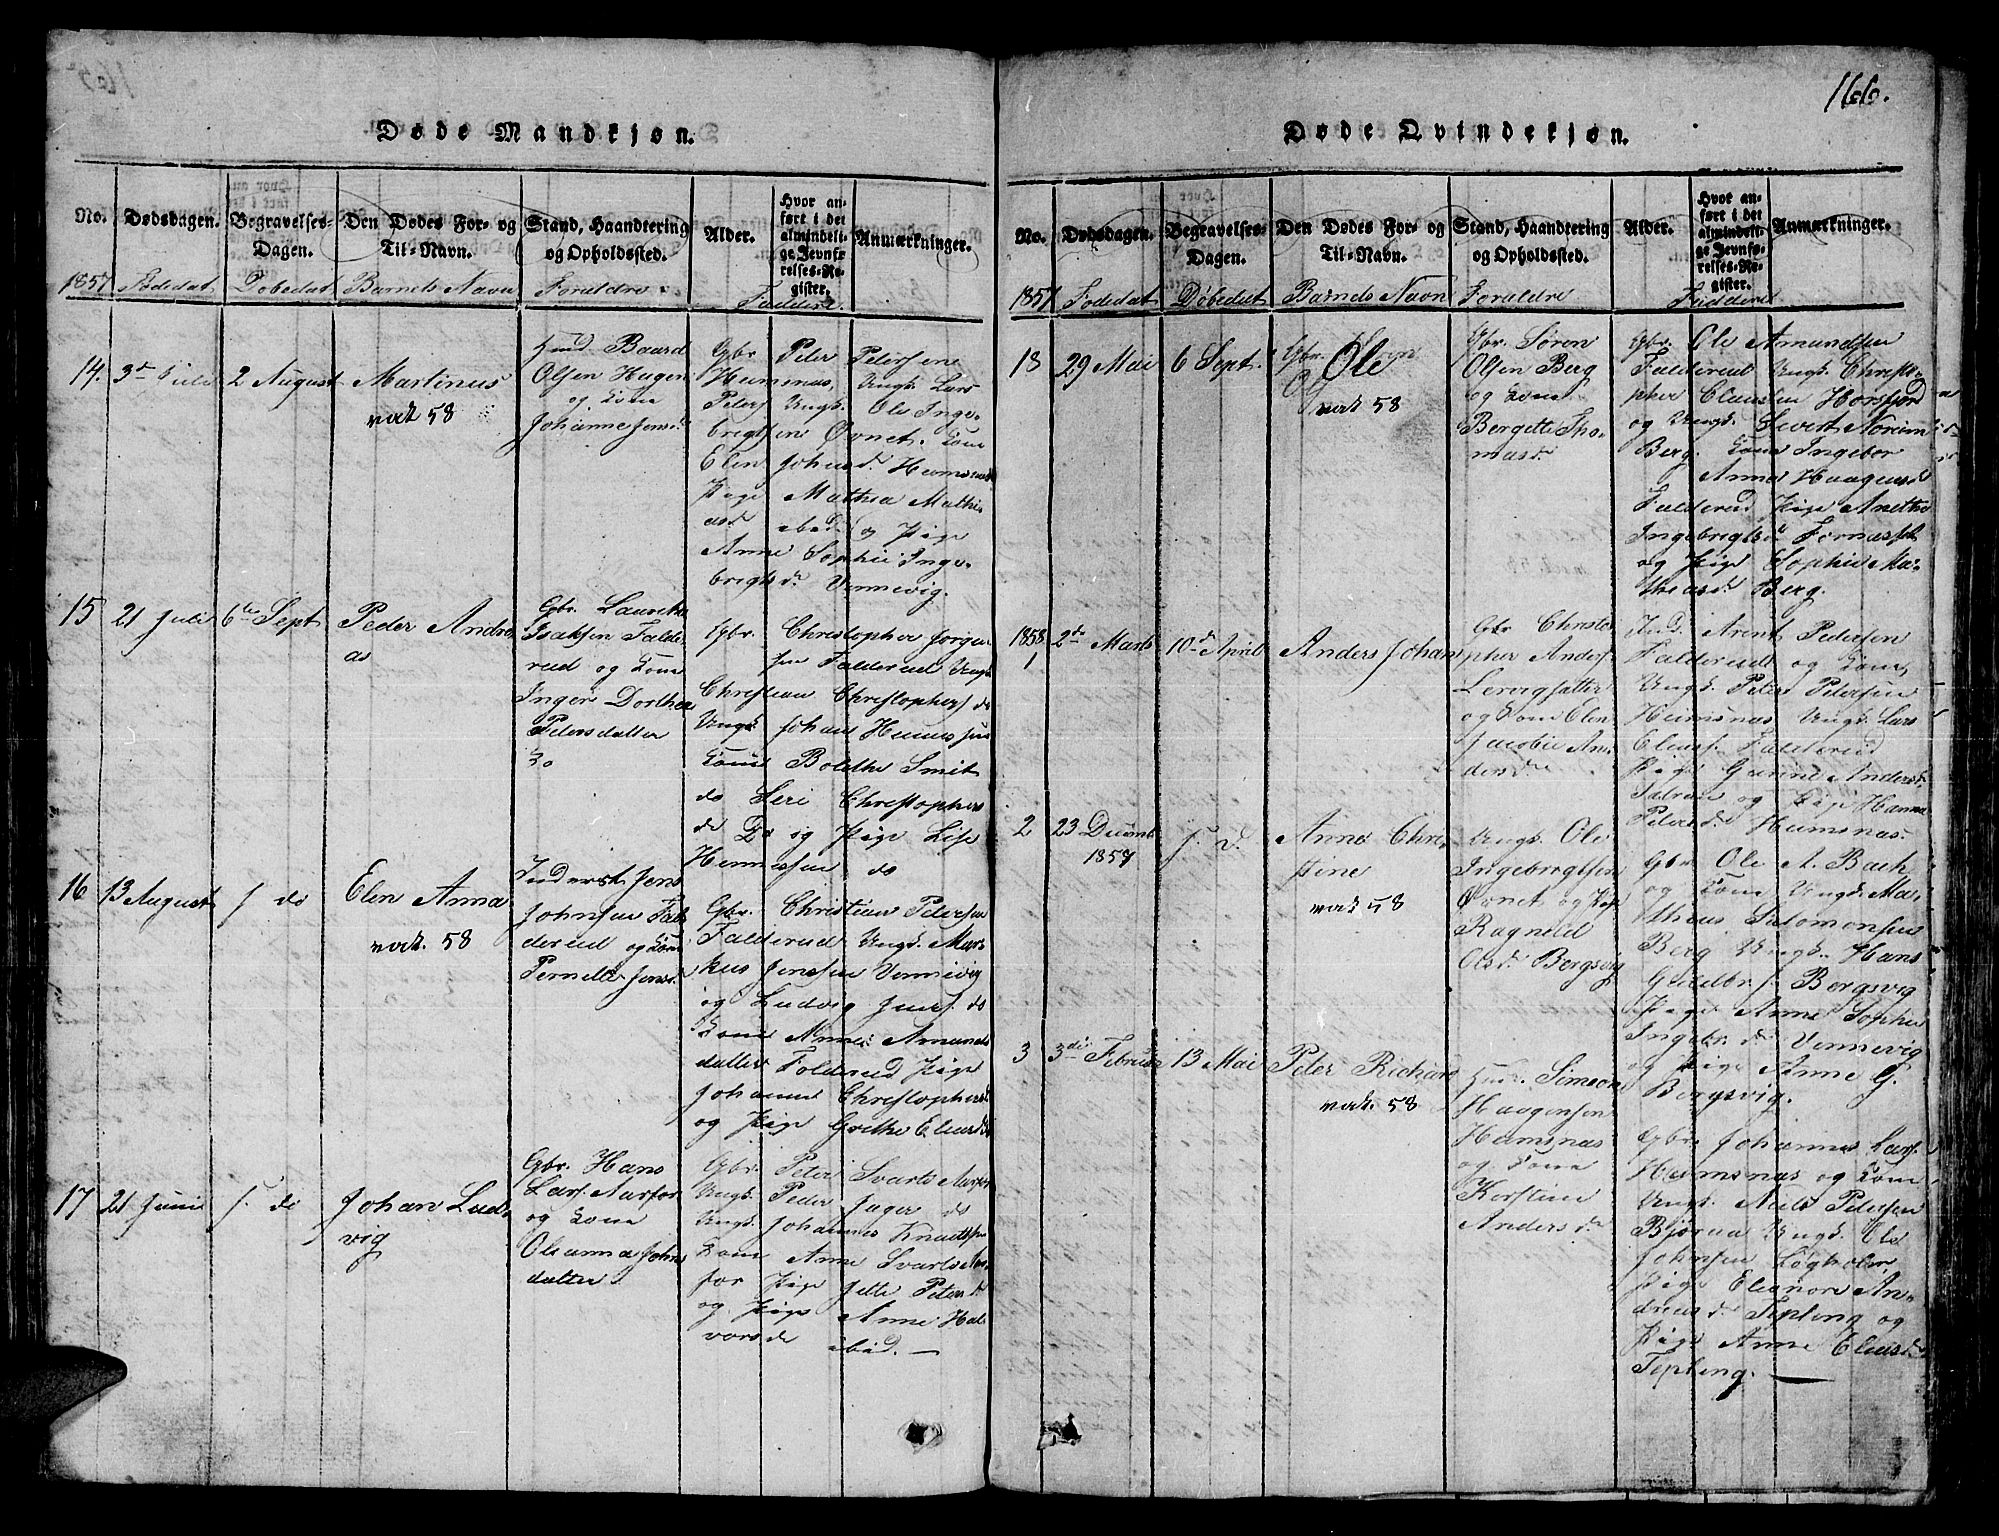 166.
Døde Mandkjøn.
No.
Dødsdagen.
Begravelses-
Dagen.
Den Dødes For- og
Til-Navn.
Stand, Haandtering
og Opholdssted.
Alder.
Hvor an-
ført i det
almindeli-
ge Jevnfø-
relses-Re-
gister.
Anmærkninger.
1857
Fødedat
Døbedat
Barnets Navn
Foraldre
Faddere
14.
3die Juli
2 August
Martinus
vak 58
Huusd Baard
Olsen Hagen
og Kone
Johanne Jensd
Gbr. Peter Petersen
Humsnas, Ungk. Lars
Peters Ungk. Ole Inge-
brigtsen Øvnet. Kone
Elen Johnsd. Humsnas
Pige Mathea Mathi-
asd ibid og Pige
Anne Sophie Inge-
brigtsdr Vennevig.
15
21 Juli
6te Sept
Peder Andre
as
Gbr. Lauritz
Isaksen Falde-
rud og Kone
Inger Dorthea
Petersdatter
do
Gbr. Christopher Jørgen-
sen Falderud Ungk
Christian Christophers do
Ungk. Johan Hennissen
Kone Bolethe Smit
do Seri Christophers
do do og Pige Lise
Hennissen do
16
13 August
s. do
Elen Anna
vak. 58
Inderst Jens
Johnsen Fal-
derud og Kone
Pernille Jensd.
Gbr. Christian Petersen
Falderud Ungk. Mar-
kus Jenssen Vennevig
og Ludvig Jens. do
Kone Anne Amunds
datter Falderud Pige
Johanne Christophersd
og Pige Grethe Eliasd do
17
21 Juni
s. do
Johan Lud-
vig
Gbr. Hans
Lars. Aarfor
og Kone
Oleanna Johns
datter
Gbr. Peter Svarts Aarfor
Ungk. Peder Jager do
Ungk. Johannes Knudssen
Kone Anne Svarts Aar-
for Pige Jette Petersd
og Pige Anne Hal-
vorsdr ibid. —
Døde Qvindekjøn.
No.
Dødsdagen.
Begravelses-
Dagen.
Den Dødes For- og
Til-Navn.
Stand, Haandtering
og Opholdssted.
Alder.
Hvor an-
ført i det
almindeli-
ge Jevnfø-
relses-Re-
gister.
Anmærkninger.
1857
Fødedat
Døbedat
Barnets Navn
Foraldre
Fadderel
18
29 Mai
6 Sept.
Ole
vak 58
Gbr. Søren
Olsen Berg
og Kone
Bergette Tho-
masdr
Gbr. Ole Amundsen
Falderud Ungk. Christo-
pher Clausen Horsfjord
og Ungk. Sivert Noreim
Berg. Kone Ingebor
Anna Haagensd
Falderud Pige Anetha
Ingebrigtsd Fornasset
og Pige Sophie Ma-
theasd Berg.
1858
1
2de Marts
10de April
Anders Johan
Gbr Christo
pher Anders.
Lervigsatter
og Kone Elen
Jacobie An-
dersdr
Ind. Arent Pedersen
Falderud og Kone,
Ungk. Peter Petersen
Humsnas Ungk. Lars
Elias. Falderud
Pige Gunne Anders
og Pige Hanna
Petersd. Humsnas.
2
23 Decemb
1857
s. d.
Anne Chri-
stine
vak 58
Ungk. Ole
Ingebrigtsen
Øvnet og Pige
Ragnild
Olsd. Bergsvig
Gbr Ole A. Bach
og Kone Ungk. Ma-
theus Salomonsen
Berg Ungk. Hans
Guldbr. s. Bergsvig
Pige Anne Sophie
Ingebr. dr Vennevig
og Pige Anne G.
Bergsvig.
3
3die Februar
13 Mai
Peter Richard
vak. 58
Huus. Simeon
Haagensen
Humsnas
og Kone
Kerstine
Andersdr
Gbr. Johannes Lars.
Humsnas og Kone
Ungk. Niels Petersen
Bjøraa Ungk. Ole
Johnsen Løgholm
Pige Eleonore An-
dreasd Tepling og
Pige Anne Eliasd
Tepling. —